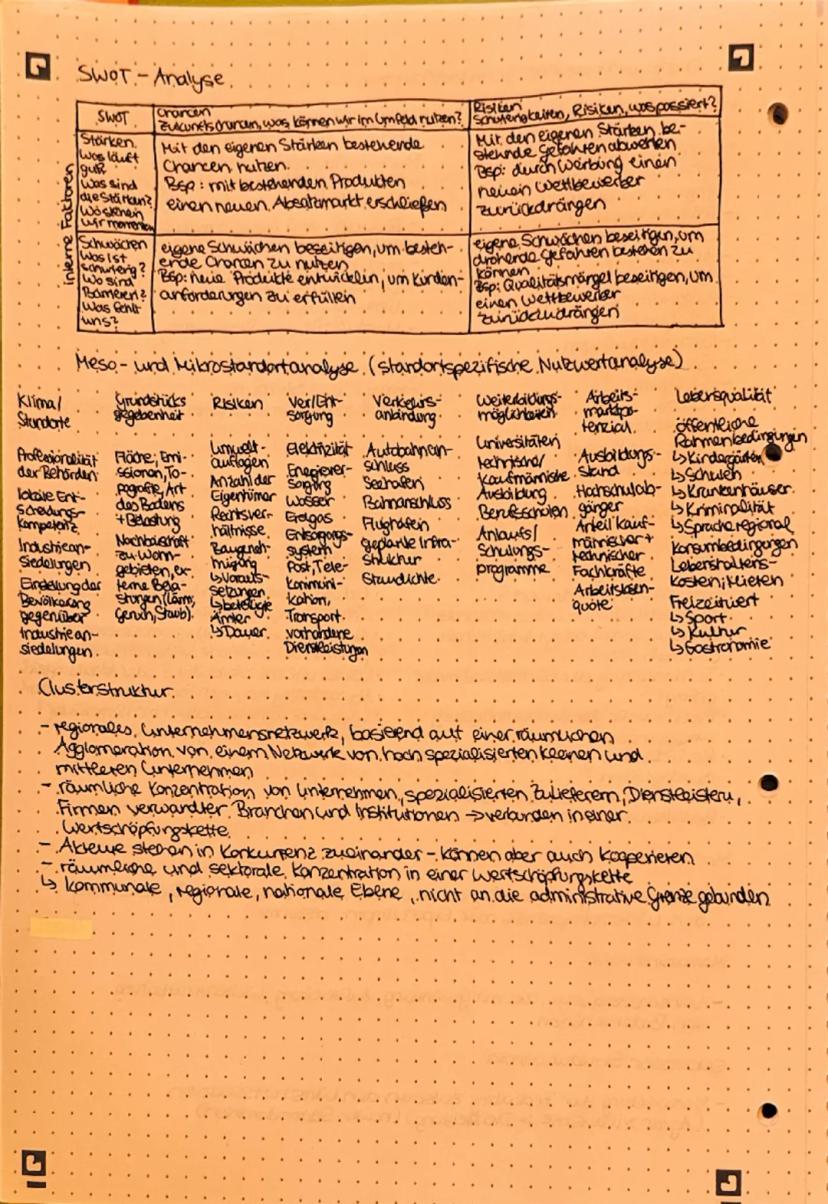 SWOT - Analyse
SWOT
Chancen
Zukunftschancen, was können wir im Umfeld nutzen?
Risiken
Schwierigkeiten, Risiken, was passiert?
interne Faktoren
Stärken
Was läuft
gut?
Was sind
die Stärken?
Wo stehen
wir momentan
Mit den eigenen Stärken bestehende
Chancen nutzen.
Bsp: mit bestehenden Produkten
einen neuen Absatzmarkt erschließen
Mit den eigenen Stärken be-
stehnde Gefahren abwenden
Bsp: durch Werbung einen
neuen Wettbewerber
zurückdrängen
Schwächen
Was ist
schwierig?
Wo sind
Barrieren?
Was fehlt
uns?
eigene Schwächen beseitigen, um besteh-
ende Chancen zu nutzen
Bsp: neue Produkte entwickeln, um Kunden-
anforderungen zu erfüllen
eigene Schwächen beseitigen, um
drohende Gefahren bestehen zu
können
Bsp: Qualitätsmängel beseitigen, um
einen Wettbewerber
zurückzudrängen
Meso- und Mikrostandortanalyse (standortspezifische Nutzwertanalyse)
Klima/
Standorte
Professionalität
der Behörden
lokale Ent-
scheidungs-
kompetenz
Industriean-
siedelungen
Einstellung der
Bevölkerung
gegenüber
Industriean-
siedelungen
Grundstücks
gegebenheit
Fläche, Emi-
ssionen, To-
pografie, Art
des Bodens
+ Belastung
Nachbarschaft
zu Wohn-
gebieten, ex-
terne Bela-
stungen (Lärm,
Geruch, Staub)
Risiken
Umwelt-
auflagen
Anzahl der
Eigentümer
Rechtsver-
hältnisse
Baugeneh-
migung
↳ Voraus-
setzungen
↳ beteiligte
Ämter
↳ Dauer
Ver/Ent-
sorgung
Elektrizität
Energiever-
sorgung
Wasser
Erdgas
Entsorgungs-
system
Post, Tele-
kommuni-
kation,
Transport
vorhandene
Dienstleistungen
Verkehrs-
anbindung
Autobahnan-
schluss
Seehafen
Bahnanschluss
Flughafen
geplante Infra-
struktur
Staudichte
Weiterbildungs-
möglichkeiten
Universitäten
technische/
kaufmännische
Ausbildung
Berufsschulen
Anlaufs/
Schulungs-
programme
Arbeits-
marktpo-
tenzial
Ausbildungs-
stand
Hochschulab-
gänger
Anteil kauf-
männischer +
technischer
Fachkräfte
Arbeitslosen-
quote
Lebensqualität
öffentliche
Rahmenbedingungen
↳ Kindergärten
↳ Schulen
↳ Krankenhäuser
↳ Kriminalität
↳ Sprache regional
Konsumbedingungen
Lebenshaltens-
kosten, Mieten
Freizeitwert
↳ Sport
↳ Kultur
↳ Gastronomie
Clusterstruktur
- regionales Unternehmensnetzwerk, basierend auf einer räumlichen
Agglomeration von einem Netzwerk von hoch spezialisierten kleinen und
mittleren Unternehmen
- räumliche Konzentration von Unternehmen, spezialisierten Zulieferern, Dienstleistern,
Firmen verwandter Branchen und Institutionen → verbunden in einer
Wertschöpfungskette
- Akteure stehen in Konkurrenz zueinander - können aber auch kooperieren
- räumliche und sektorale Konzentration in einer Wertschöpfungskette
↳ kommunale, regionale, nationale Ebene, nicht an die administrative Grenze gebunden